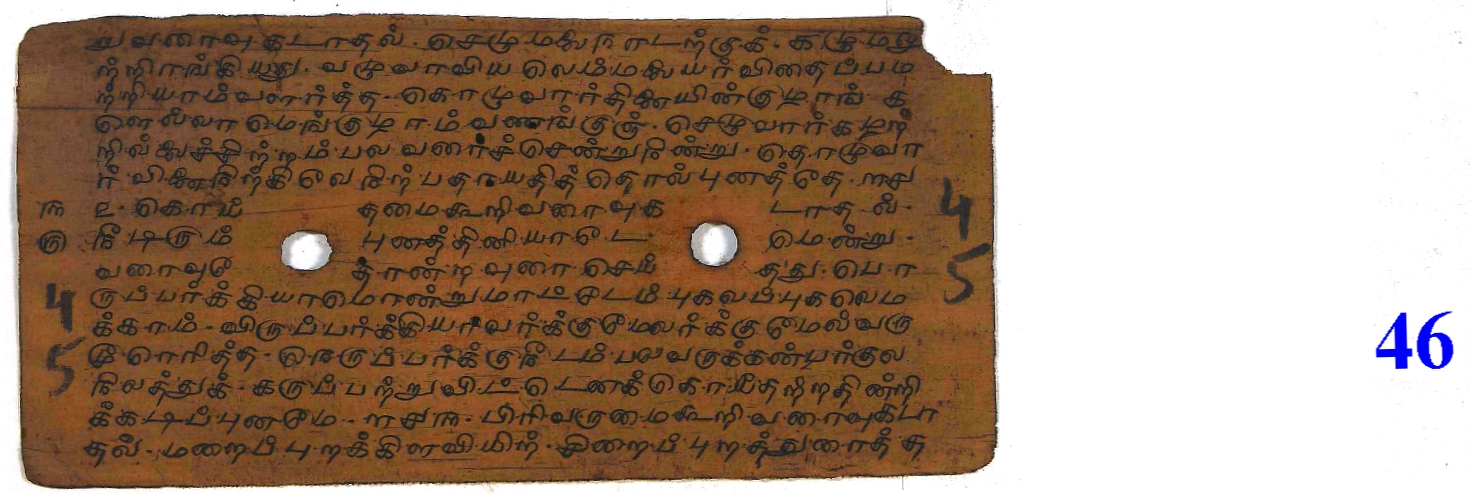 று வரைவு கடாதல். செழுமலை நாடற்குக். கழுமலு
ற்றிரங்கியது. வழுவாவிய லெம்மலையர் விதைப்பம
ற்றியாம் வளர்த்த. கொழுவார் தினையின் குழாங் க
ளெல்லா மெங்குழாம் வணங்குஞ். செழுவார் கழற்
றில்லைச்சிற்றம்பலவரைச் சென்று நின்று. தொழுவா
ர் வினை நிற்கிலே நிற்பதாவ தித் தொல் புனத்தே. ளசு
௨. கொய் தமை கூறி வரைவு க டாதல்.
நீடிரும் புனத்தினியாடே ல மென்று.
வரைவு தோன்ற வுரை செய் தது. பொ
ருப்பர்க்கியாமொன்றுமாட்டேம் புகலப் புகலெம
க்காம். விருப்பர்க்கியாவர்க்கு மேலர்க்கு மேல் வரு
மூரெரித்த. நெருப்பர்க்கு நீடம்பலவருக்கன்பர் குல
நிலத்துக். கருப்பற்று விட்டெனக் கொய்தற்றதின்றி
க்கடிப்புனமே. ளசங. பிரிவருமை கூறி வரைவு கடா
தல். மறைப்புறக்கிளவியிற். சிறைப்புறத்துரைத்த
ங
ரு
4
5
4
5
46